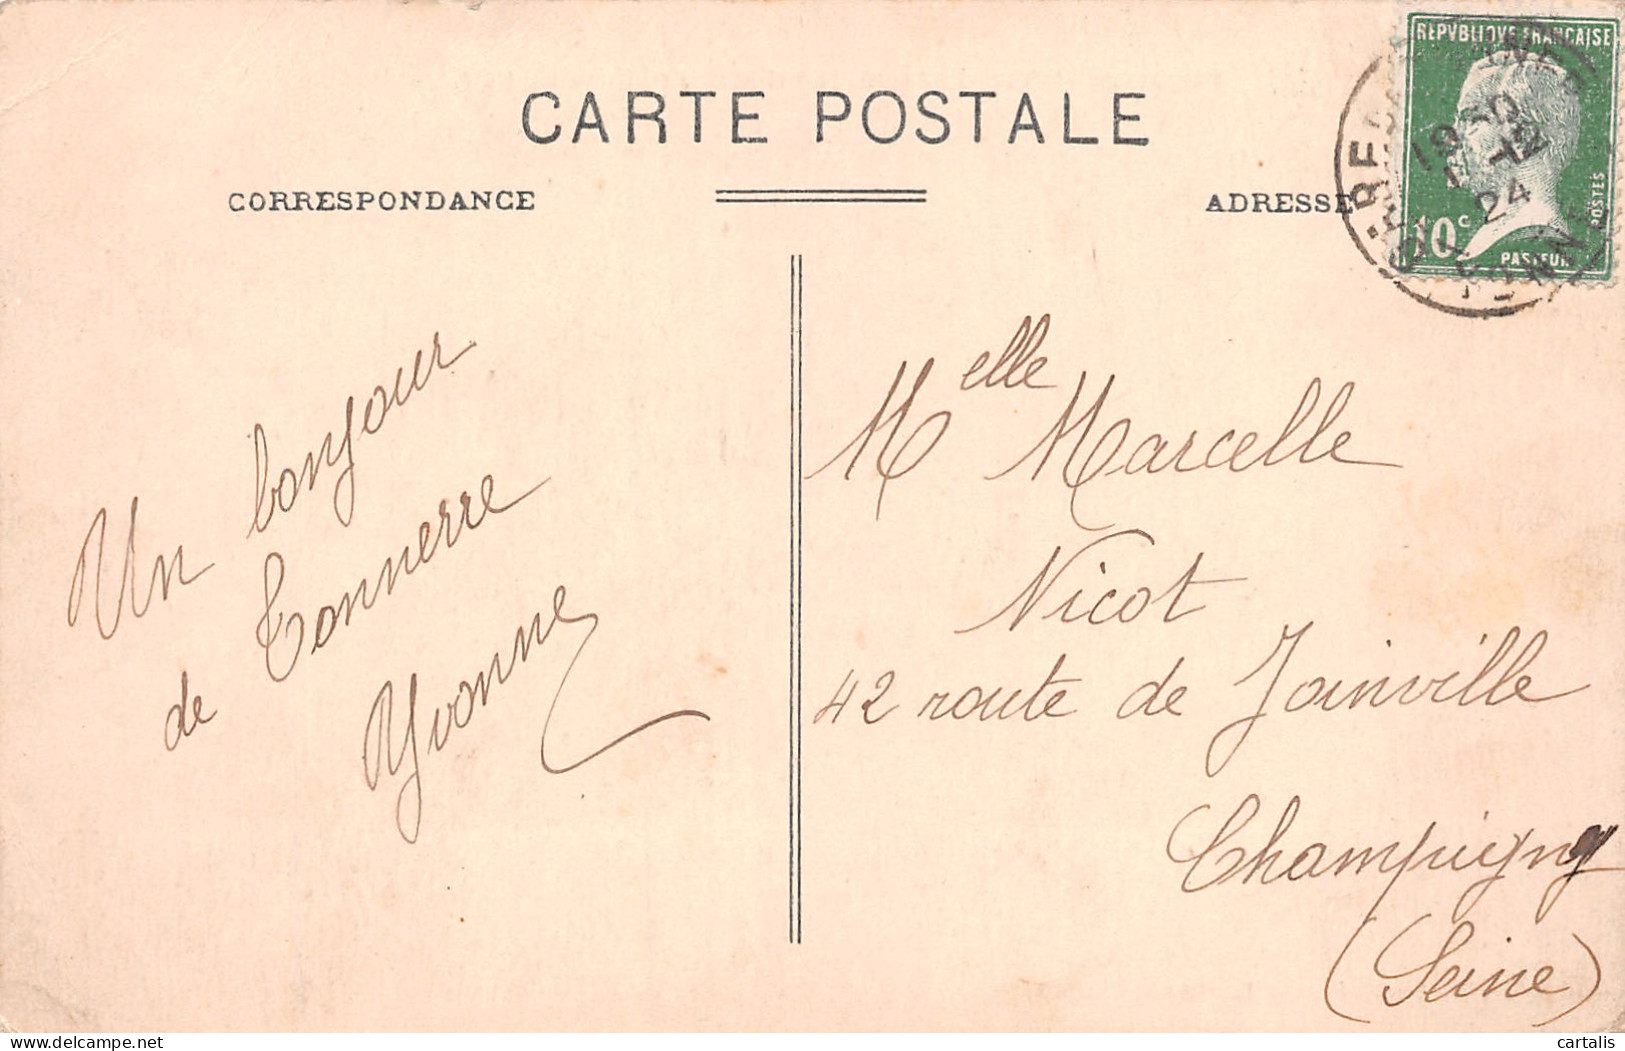 CARTE POSTALE
CORRESPONDANCE
ADRESSE
REPVBLIQVE FRANCAISE
10c
POSTES
PASTEUR
24
Un bonjour
de Tonnerre
Yvonne
Melle Marcelle
Nicot
42 route de Joinville
Champigny
(Seine)
cartalis
delcampe.net